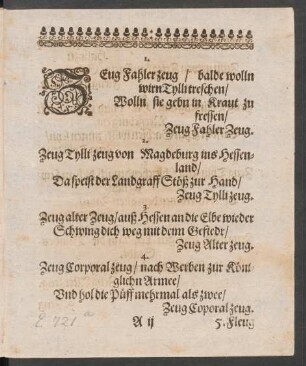 1.
ZEug Fatzler zeug / balde wolln
wirn Tylli treschen /
Wolln sie gebn in Kraut zu
fressen /
Zeug Fatzler Zeug.
2.
Zeug Tylli zeug von Magdeburg ins Hessen-
land /
Da speist der Landgraff Stöß zur Hand /
Zeug Tylli zeug.
3.
Zeug alter Zeug / auß Hessen an die Elbe wieder
Schwing dich weg mit deim Gefiedr /
Zeug Alter zeug.
4.
Zeug Corporal zeug / nach Werben zur Kön-
glichn Armee /
Vnd hol die Püff mehrmal als zwee /
Zeug Coporal zeug.
A ij 5. Fleug